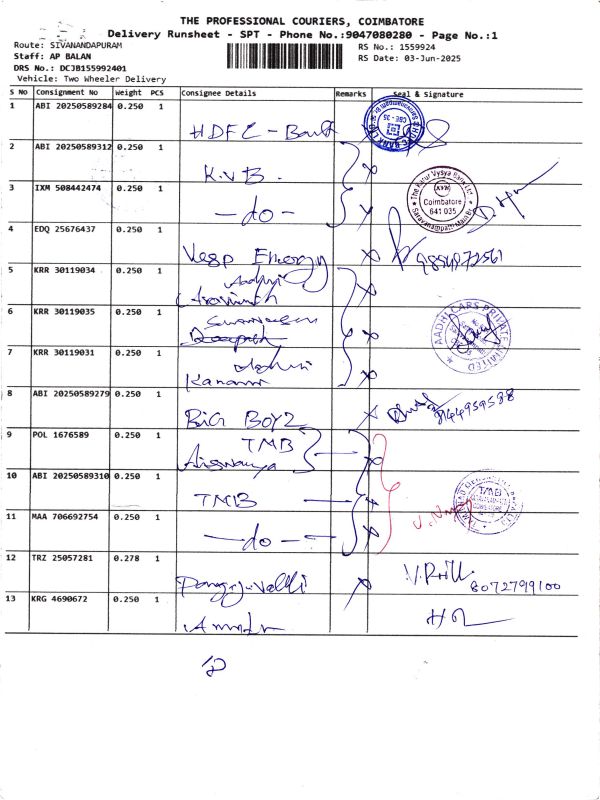 THE PROFESSIONAL COURIERS, COIMBATORE
Delivery Runsheet - SPT - Phone No.:9047080280 - Page No.:1
Route: SIVANANDAPURAM
RS No.: 1559924
Staff: AP BALAN
RS Date: 03-Jun-2025
DRS No.: DCJB1559992401
Vehicle: Two Wheeler Delivery
S No Consignment No Weight PCS Consignee Details Remarks Seal & Signature
1 ABI 20250589284 0.250 1
HDFC - Bank
2 ABI 20250589312 0.250 1
K.V.B.
3 IXM 508442474 0.250 1
- do -
The Karur Vysya Bank Ltd
KVB
Coimbatore
641 035
Saravanampatti Main Br.
4 EDQ 25676437 0.250 1
Energy
5 KRR 30119034 0.250 1
6 KRR 30119035 0.250 1
AADHI CARS PRIVATE LIMITED
7 KRR 30119031 0.250 1
8 ABI 20250589279 0.250 1
BIG BOYZ
9 POL 1676589 0.250 1
TMB
Aiswarya
10 ABI 20250589310 0.250 1
TMB
TMB
11 MAA 706692754 0.250 1
- do -
12 TRZ 25057281 0.278 1
8072799100
13 KRG 4690672 0.250 1